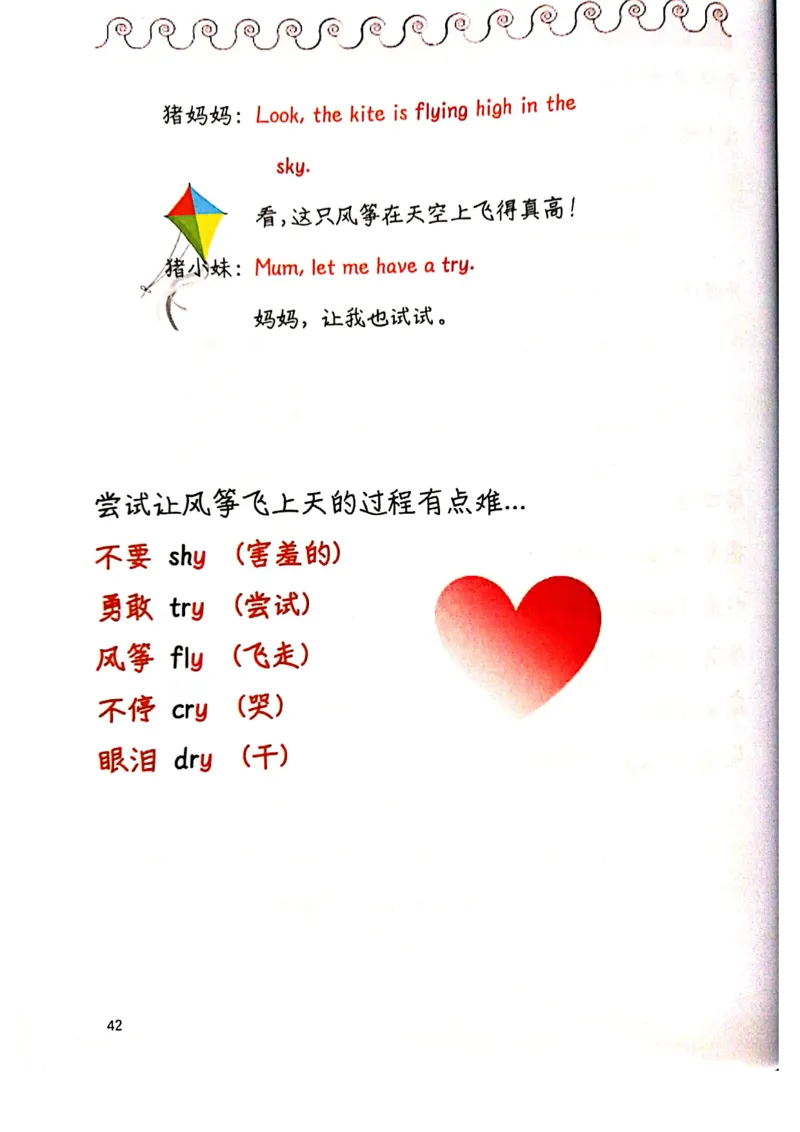 猪妈妈：Look, the kite is flying high in the
sky.
看，这只风筝在天空上飞得真高！
猪小妹：Mum, let me have a try.
妈妈，让我也试试。
尝试让风筝飞上天的过程有点难...
不要 shy （害羞的）
勇敢 try （尝试）
风筝 fly （飞走）
不停 cry （哭）
眼泪 dry （干）
42